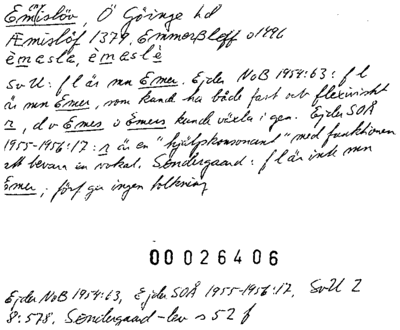 Emislöv, Ö Göinge hd
Æmisløf 1379, Emmerßleff o 1496
èmasla, èmaslè
SvU: f l är mn Emer. Ejder NoB 1954:63: f l
är mn Emer, som kunde ha både fast och flexiviskt
r, d v Emes o Emers kunde växla i gen. Ejder SOÅ
1955-1956:17: r är en "hjälpkonsonant" med funktionen
att bevara en vokal. Søndergaard: f l är inte mn
Emer; förf ger ingen tolkning
00026406
Ejder NoB 1954:63, Ejder SOÅ 1955-1956:17, SvU 2
8:578, Søndergaard-lev s 52 f